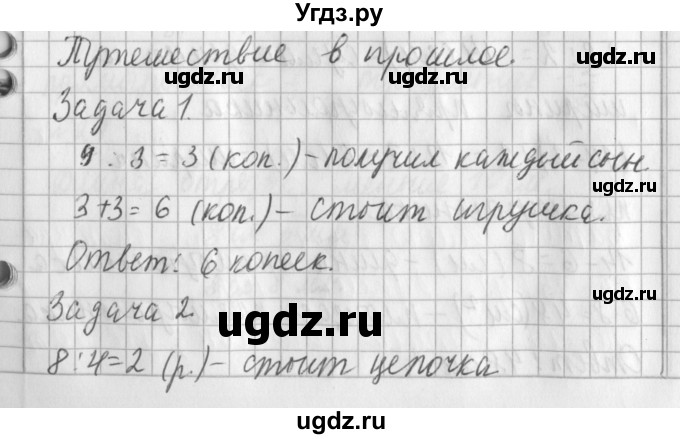 Угдз.ру
Путешествие в прошлое.
ugdz.ru ugdz.ru
Задача 1.
9 : 3 = 3 (коп.) – получил каждый сын
ugdz.ru
3+3= 6 (коп.) – стоит игрушка.
Ответ: 6 копеек.
ugdz.ru
Задача 2.
ugdz.ru
8:4=2 (р.) – стоит цепочка
ugdz.ru